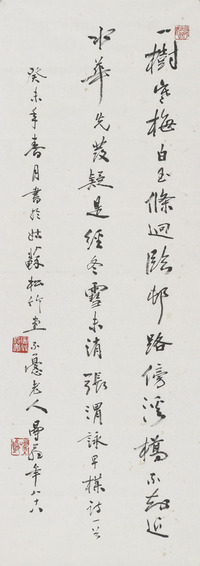 一樹寒梅白玉條迥臨邨路傍溪橋不知近
水華先發疑是經冬雪未消張渭詠早楳詩一首
癸未年春月書於姑蘇松竹堂不憂老人
年八十八